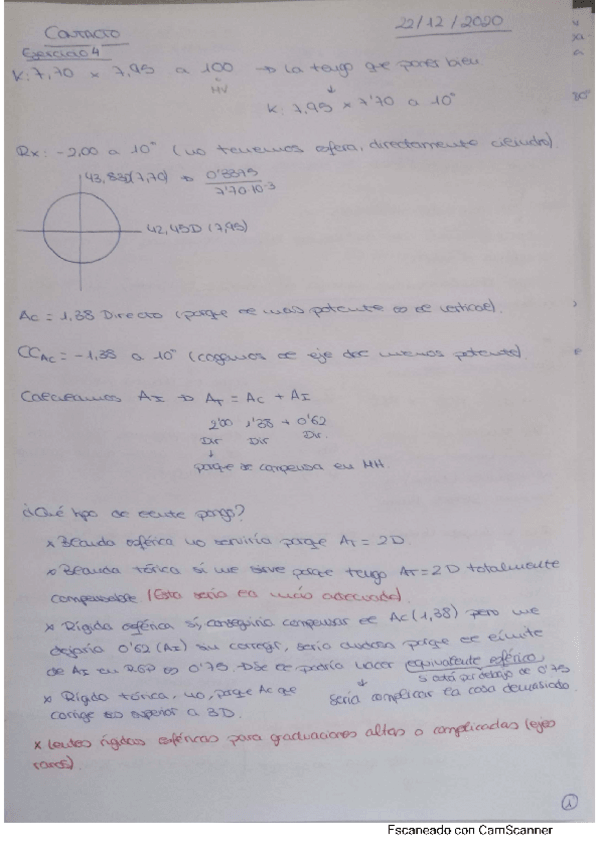 Contacto
22/12/2020
Ejercicio 4
K: 7,70 x 7,95 a 100 → la tengo que poner bien
MV ↓
K: 7,95 x 7'70 a 10°
80°
Rx: -2,00 a 10° (no tenemos esfera, directamente cilindro).
43,83D(7,70) → 0'3375
7'70·10-3
42,45D (7,95)
Ac = 1,38 Directo (porque el más potente es el vertical).
CCAC = -1,38 a 10° (cogemos el eje del menos potente)
Calculamos AI → AT = AC + AI
2'00 1'38 + 0'62
Dir Dir Dir.
↓
porque se compensa en MH.
¿Qué tipo de lente pongo?
x Blanda esférica no serviría porque AT = 2D.
x Blanda tórica sí me sirve porque tengo AT=2D totalmente
compensable (Esta sería la más adecuada).
x Rígida esférica sí, conseguiría compensar el Ac (1,38) pero me
dejaría 0'62 (AI) sin corregir, sería dudosa porque el límite
de AI en RGP es 0'75. Se le podría hacer equivalente esférico,
si está por debajo de 0'75
↓
sería complicar la cosa demasiado.
x Rígida tórica, no, porque Ac que
corrige es superior a 3D.
x Lentes rígidas esféricas para graduaciones altas o complicadas (ejes
raros).
1
Escaneado con CamScanner